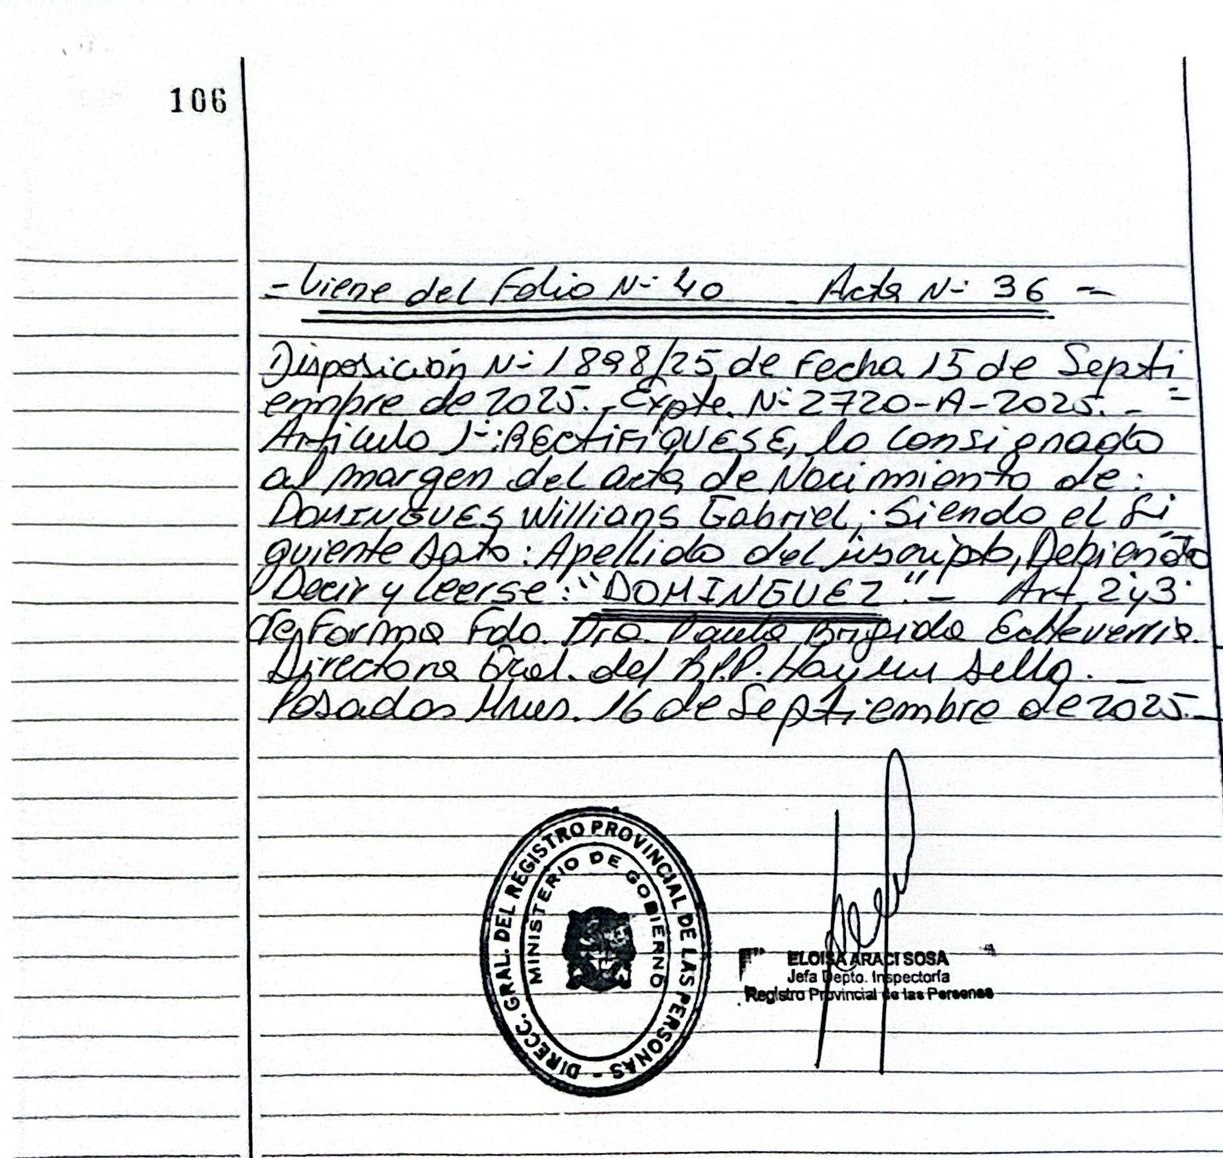 106
- Viene del Folio Nº 40 - Acta Nº 36 -
Disposición Nº 1898/25 de Fecha 15 de Septi
embre de 2025.- Expte. Nº 2720-A-2025.- =
Artículo 1º: RECTIFIQUESE, lo consignado
al margen del acta de Nacimiento de:
DOMINGUES Willians Gabriel, Siendo el Si
guiente dato: Apellido del inscripto, Debiendo
Decir y Leerse: "DOMINGUEZ".- Art. 2 y 3
de Forma Fdo. Dra. Paula Brigida Echeverria.
Directora Gral. del R.P.P. Hay un sello. -
Posadas Mnes. 16 de Septiembre de 2025.-
DIRECC. GRAL. DEL REGISTRO PROVINCIAL DE LAS PERSONAS -
MINISTERIO DE GOBIERNO
ELOISA ARACI SOSA
Jefa Depto. Inspectoría
Registro Provincial de las Personas